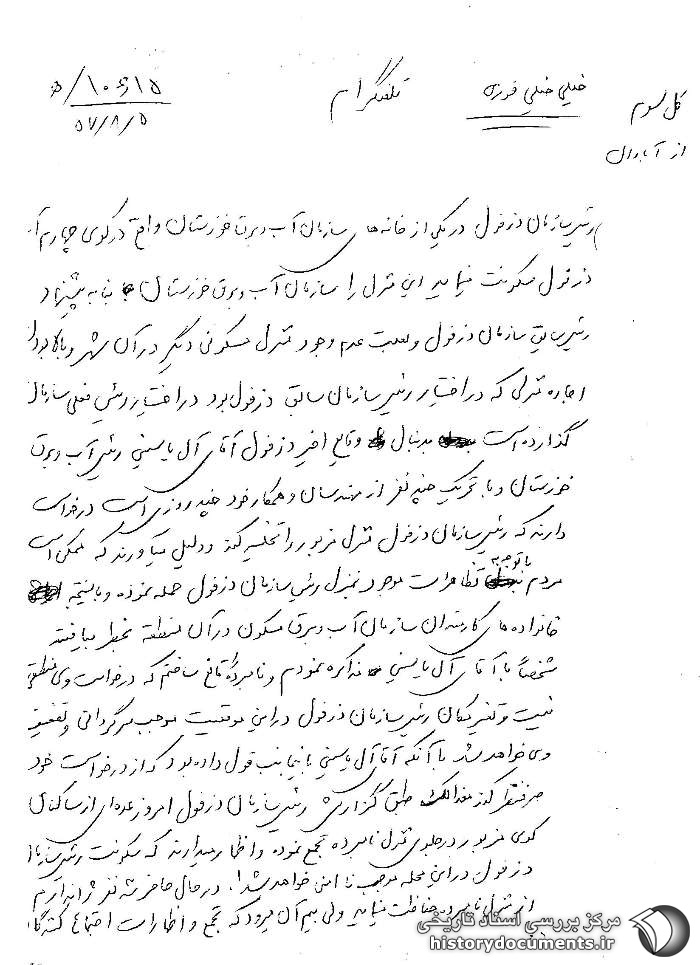 خیلی خیلی فوری
تلفنگرام
۱۰۶۱۵/ه
۵۷/۸/۵
کل سوم
از آبادان
رئیس سازمان دزفول در یکی از خانه های سازمان آب و برق خوزستان واقع در کوی چهارم آ
دزفول سکونت مینماید این منزل را سازمان آب و برق خوزستان بنا به پیشنهاد
رئیس سابق سازمان دزفول و بعلت عدم وجود منزل مسکونی دیگر در آن شهر و بالا بودن
اجاره منزلی که در اختیار رئیس سازمان سابق دزفول بود در اختیار رئیس فعلی سازمان
گذارده است بدنبال وقایع اخیر دزفول آقای آل یاسینی رئیس آب و برق
خوزستان و با تحریک چند نفر از مهندسان و همکار خود چند روزی است درخواست
دارند که رئیس سازمان دزفول منزل مزبور را تخلیه کند و دلیل میآورند که ممکن است
مردم با توجه به تظاهرات موجود بمنزل رئیس سازمان دزفول حمله نموده و بالنتیجه
خانواده های کارمندان سازمان آب و برق مسکون در آن منطقه بخطر بیافتند
شخصاً با آقای آل یاسینی مذاکره نمودم و نامبرده را قانع ساختم که درخواست وی منطقی
نیست و تغییر مکان رئیس سازمان دزفول در این موقعیت موجب سرگردانی و تضعیف
وی خواهد شد با آنکه آقای آل یاسینی باینجانب قول داده بود که از درخواست خود
صرفنظر کند معذالک طبق گزارش رئیس سازمان دزفول امروز عده ای از ساکنان
کوی مزبور در جلوی منزل نامبرده تجمع نموده و اظهار میدارند که سکونت رئیس سازمان
دزفول در این محله موجب ناامنی خواهد شد. در حال حاضر سه نفر ژاندارم
از منزل نامبرده حفاظت مینماید ولی بیم آن میرود که تجمع و اظهارات اجتماع کنندگان
مرکز بررسی اسناد تاریخی
historydocuments.ir